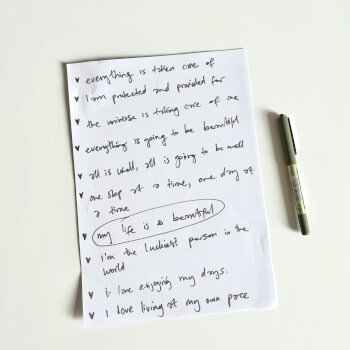 ♥ everything is taken care of
♥ I am protected and provided for
♥ the universe is taking care of me
♥ everythings is going to be beautiful
♥ all is well, all is going to be well
♥ one step at a time, one day at
a time
♥ my life is so beautiful
♥ I'm the luckiest person in the
world
♥ i love enjoying my days.
♥ I love living at my own pace